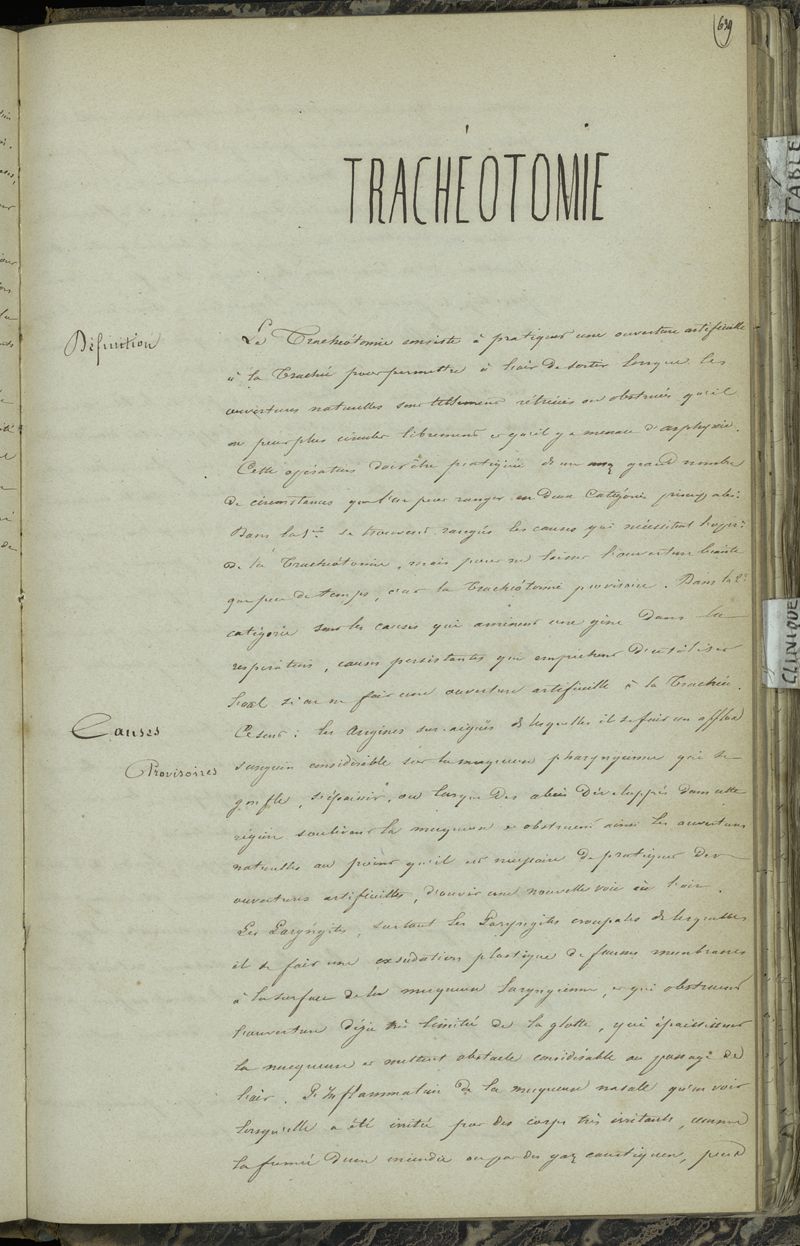 639
TRACHÉOTOMIE
TABLE
CLINIQUE
Définition
La Trachéotomie consiste à pratiquer une ouverture artificielle
à la Trachée pour permettre à l'air de sortir lorsque les
ouvertures naturelles sont tellement rétrécies ou obstruées qu'il
ne peut plus circuler librement et qu'il y a menace d'asphyxie.
Cette opération doit être pratiquée dans un grand nombre
de circonstances que l'on peut ranger en deux Catégories principales:
Dans la 1re se trouvent rangées les causes qui nécessitent l'opér:
de la Trachéotomie, mais pour ne laisser l'ouverture béante
que peu de temps, c'est la Trachéotomie provisoire. Dans la 2e
catégorie sont les causes qui amènent une gêne dans la
respiration, causes persistantes qui empêchent d'utiliser
si on ne fait une ouverture artificielle à la Trachée.
Causes
Provisoires
Ce sont: les Angines sur-aiguës dans lesquelles il se fait un afflux
sanguin considérable sur la muqueuse pharyngienne qui se
gonfle, s'épaissit, ou lorsque des abcès développés dans cette
région soulèvent la muqueuse et obstruent ainsi les ouvertures
naturelles au point qu'il est nécessaire de pratiquer des
ouvertures artificielles, d'ouvrir une nouvelle voie à l'air.
Les Laryngites, surtout les Laryngites croupales dans lesquelles
il se fait une exsudation plastique de fausses membranes
à la surface de la muqueuse laryngienne, et qui obstruent
l'ouverture déjà très limitée de la glotte, qui épaississent
la muqueuse et mettent obstacle considérable au passage de
l'air. L'Inflammation de la muqueuse nasale qu'on voit
lorsqu'elle a été irritée par des corps très irritants, comme
la fumée d'un incendie ou par des gaz caustiques, peut